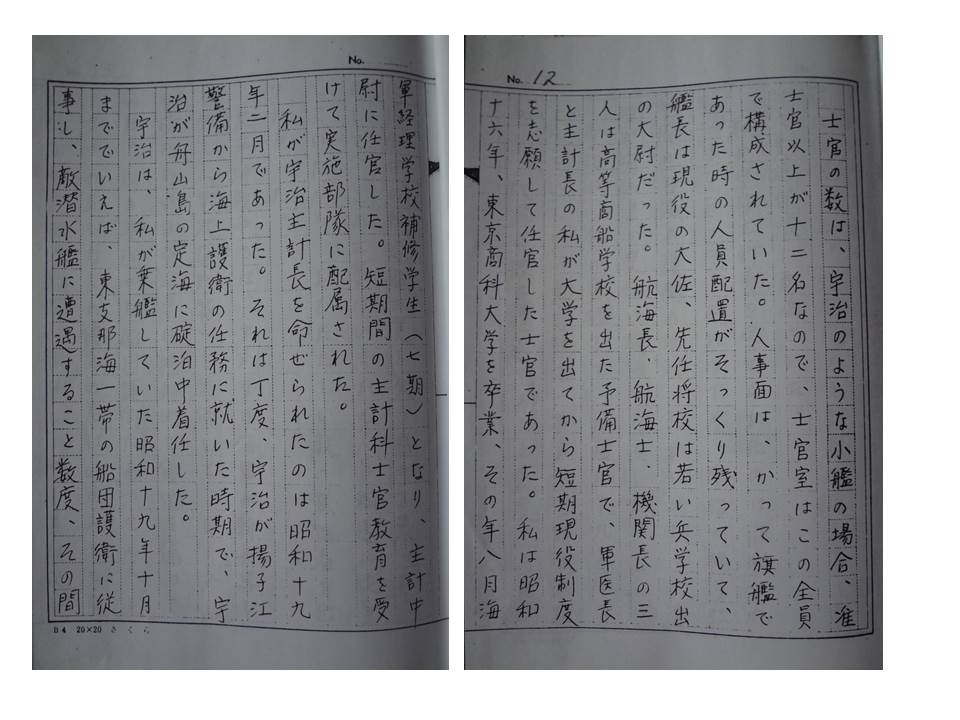 No. 12
士官の数は、宇治のような小艦の場合、准
士官以上が十二名なので、士官室はこの全員
で構成されていた。人事面は、かって旗艦で
あった時の人員配置がそっくり残っていて、
艦長は現役の大佐、先任将校は若い兵学校出
の大尉だった。航海長、航海士、機関長の三
人は高等商船学校を出た予備士官で、軍医長
と主計長の私が大学を出てから短期現役制度
を志願して任官した士官であった。私は昭和
十六年、東京商科大学を卒業、その年八月海
No.
軍経理学校補修学生（七期）となり、主計中
尉に任官した。短期間の主計科士官教育を受
けて実施部隊に配属された。
私が宇治主計長を命ぜられたのは昭和十九
年二月であった。それは丁度、宇治が揚子江
警備から海上護衛の任務に就いた時期で、宇
治が舟山島の定海に碇泊中着任した。
宇治は、私が乗艦していた昭和十九年十月
まででいえば、東支那海一帯の船団護衛に従
事し、敵潜水艦に遭遇すること数度、その間
B4 20×20 さくら